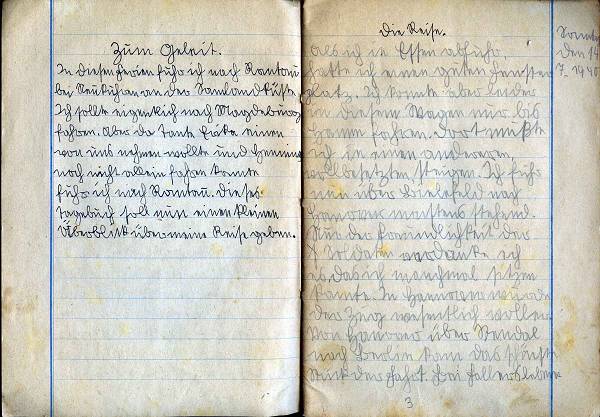 Zum Geleit.
In diesen Ferien fuhr ich nach Rantau
bei Neukuhren an der Samlandküste
Ich sollte eigentlich nach Magdeburg
fahren. Aber da Tante Erika einen
von uns nehmen wollte und Henning
noch nicht allein fahren konnte
fuhr ich nach Rantau. Dieses
Tagebuch soll nun einen kleinen
Überblick über meine Reise geben.
Die Reise.
Sonntag
den 14
7. 1940
als ich in Essen abfuhr
hatte ich einen guten Fenster
platz. Ich konnte aber leider
in diesem Wagen nur bis
Hamm fahren. Dort mußte
ich in einen anderen,
vollbesetzten steigen. Ich fuhr
nun über Bielefeld nach
Hannover meistens stehend.
Nur der Freundlichkeit der
Soldaten verdanke ich
es, das ich manchmal sitzen
konnte. In Hannover wurde
der Zug wesentlich voller.
Von Hanover über Stendal
nach Berlin kam das schönste
Stück der Fahrt. Bei Fallersleben
3